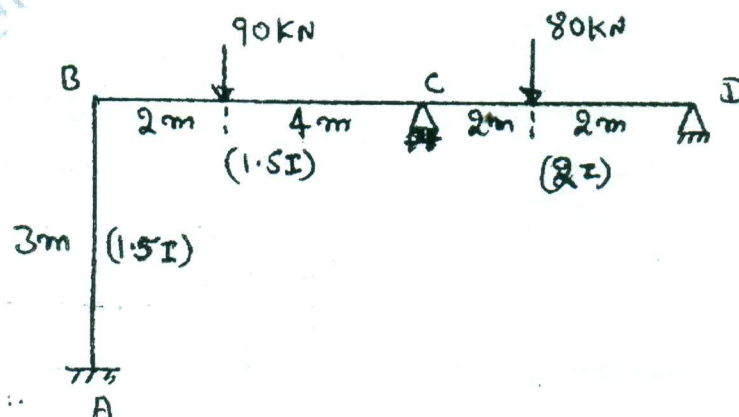 90KN 80KN
B C D
2m 4m 2m 2m
(1.5I) (2I)
3m (1.5I)
A